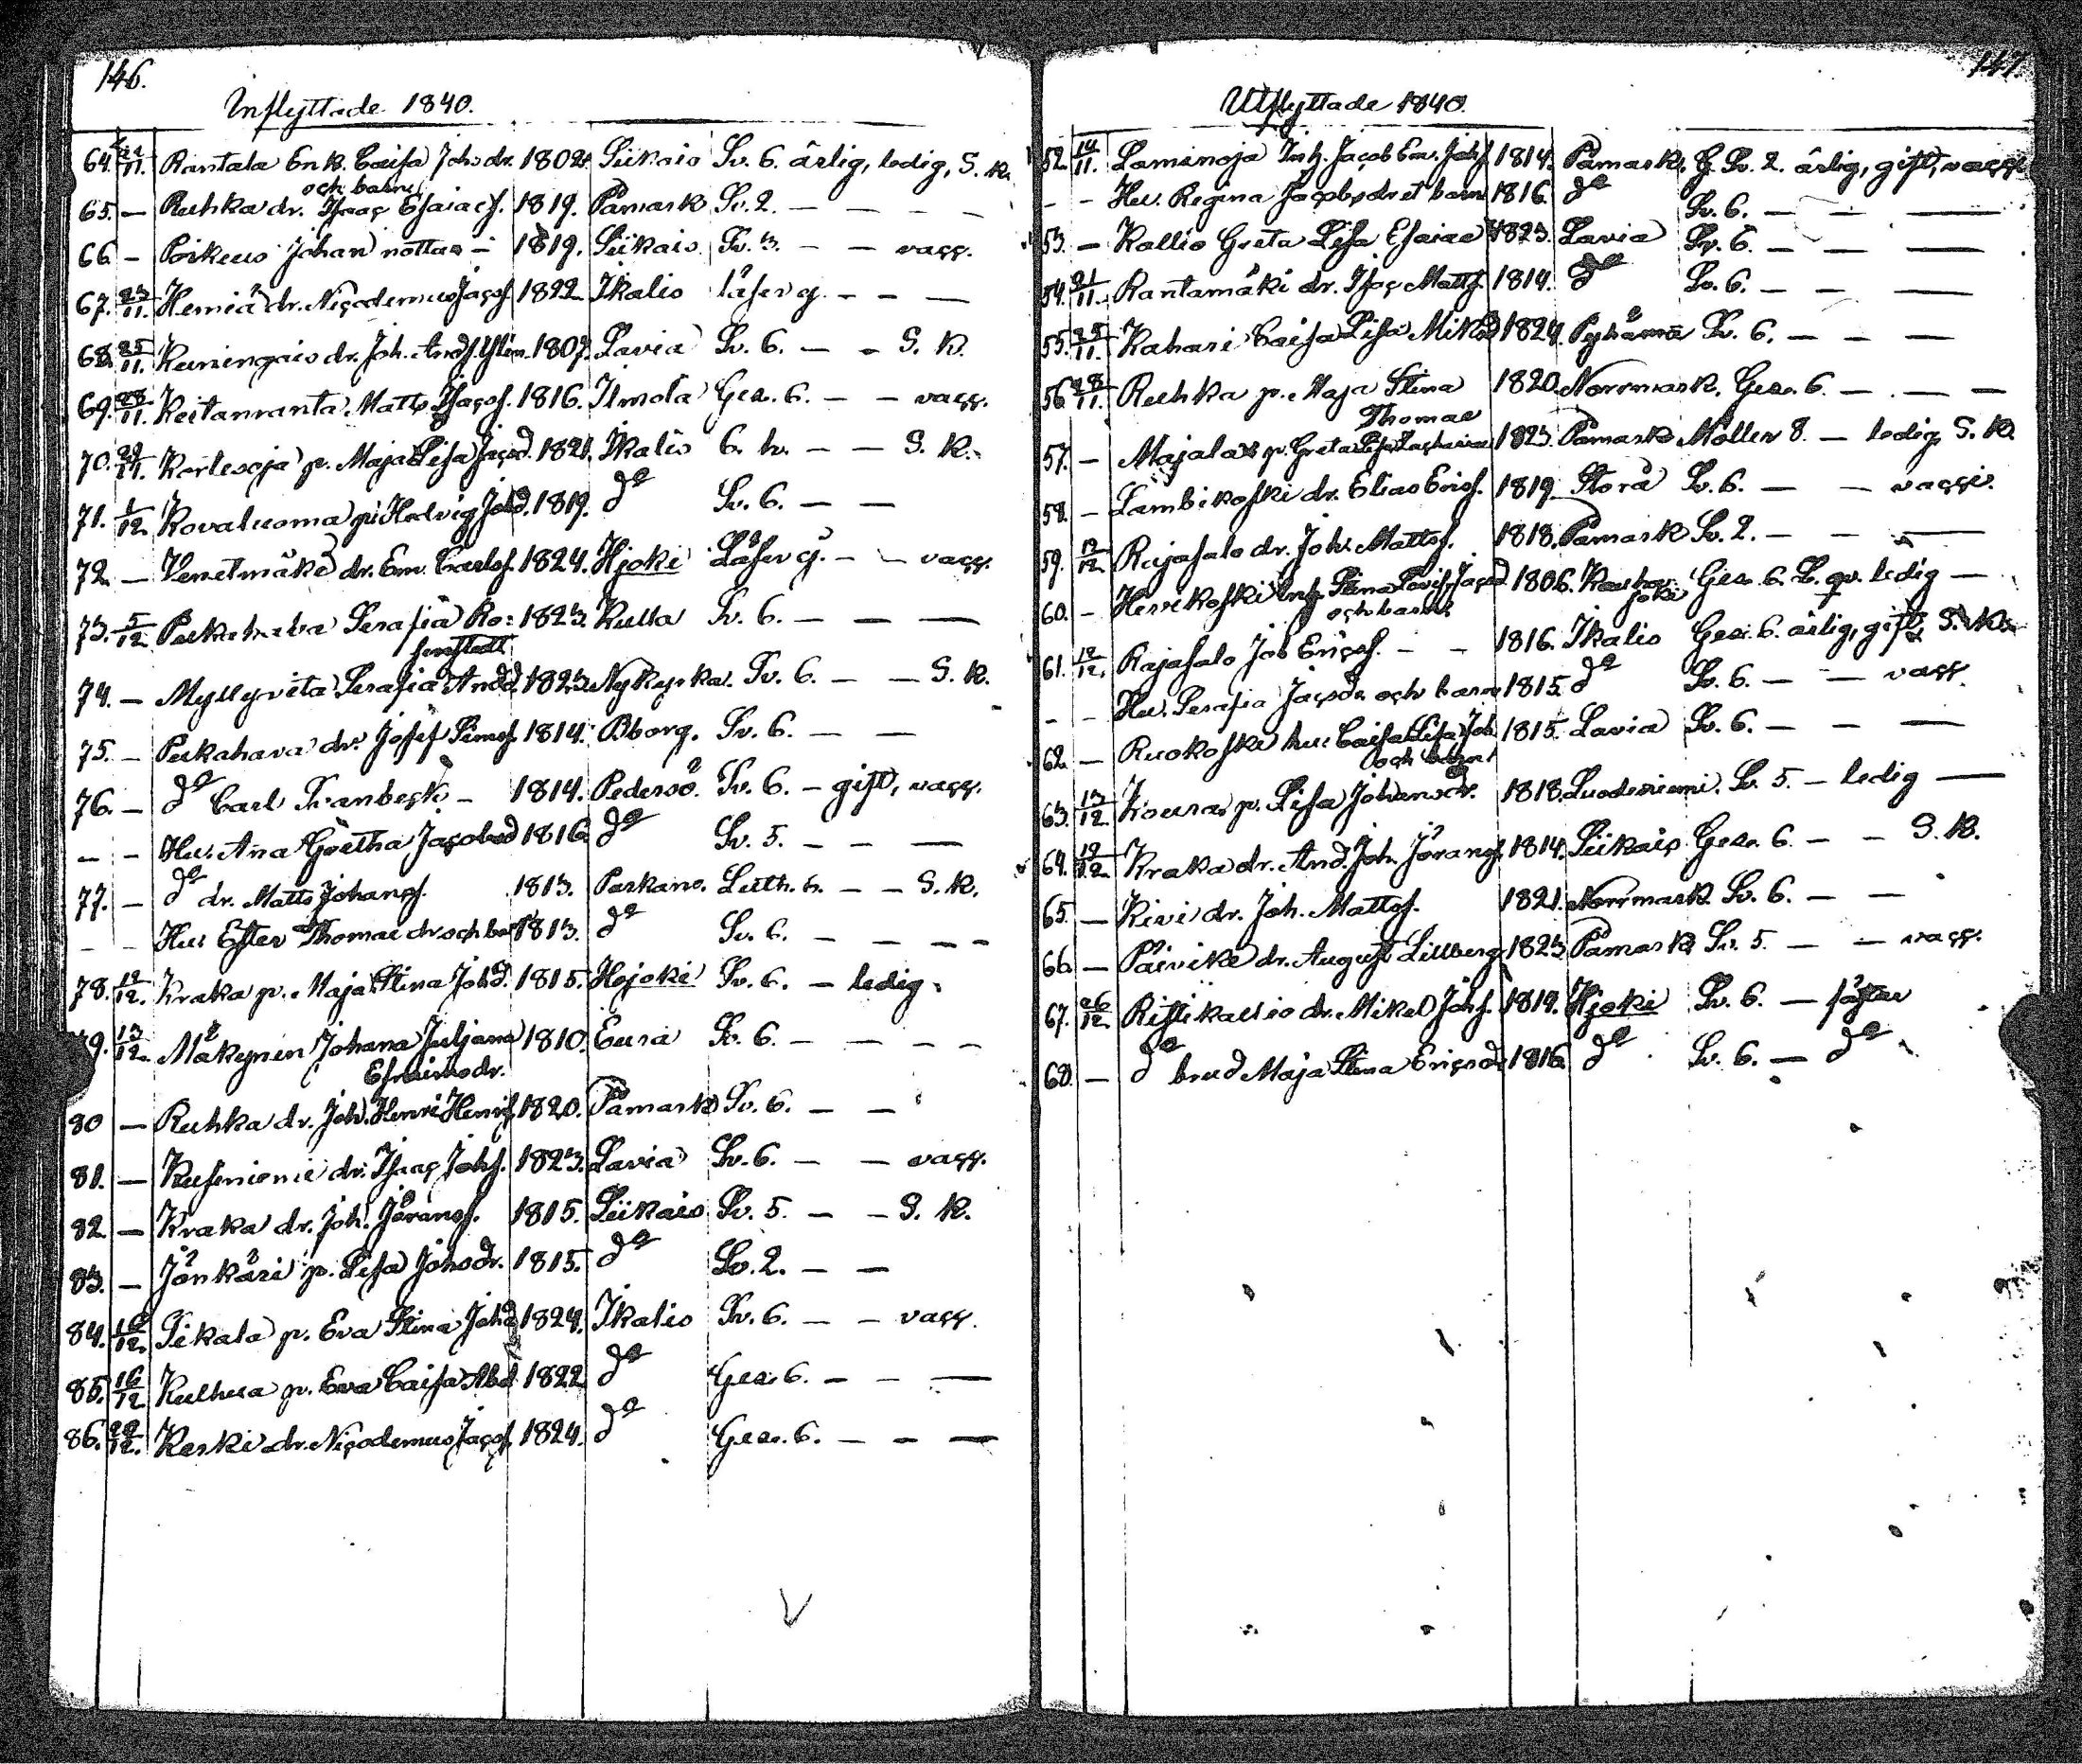 146.
Inflyttade 1840.
64. 22/11. Rantala Enk. Caisa Joh.dr. 1802. Siikais Sv. 6. ärlig, ledig, S. K.
och barn
65. — Ruhka dr. Isaac Esaiaes. 1819. Påmark Sv. 2. — — — —
66 — Poikeus Johan nottas — 1819. Siikais Sv. 3. — — vacc.
67. 23/11. Hemiä dr. Nicodemus Jacos. 1822. Ikalis läser g. — — —
68. 25/11. Kuningais dr. Joh. And.s. 1807. Lavia Sv. 6. — — S. K.
69. 28/11. Keitanranta Matts Isacs. 1816. Ilmola Ges. 6. — — vacc.
70. 29/11. Korlesoja p. Maja Lisa Jac.d. 1821. Ikalis 6. h. — — S. K.
71. 1/12 Kovaluoma pi. Hedvig Joh.d. 1819. d:o Sv. 6. — —
72. — Venetmäki dr. Em. Carls s. 1824. Hjoki Läser g. — — vacc.
73. 5/12 Peskahava Serafia Ro: 1823. Kulla Sv. 6. — — —
senstedt
74. — Myllyviita Serafia And.d. 1823. Nykyrka. Sv. 6. — — S. K.
75. — Peskahava dr. Josef Simos. 1814. Bborg. Sv. 6. — —
76. — d:o Carl Svanbeck — 1814. Pedersö. Sv. 6. — gift, vacc.
— — Hu. Ana Gretha Jacobsd 1816. d:o Sv. 5. — — —
77. — d:o dr. Matts Johans s. 1813. Parkano. Luth. h. — — S. K.
— — Hu: Ester Thomae dr och barn 1813. d:o Sv. 6. — — — —
78. 12/12. Kraka p. Maja Stina Joh.d. 1815. Hojoki Sv. 6. — ledig
79. 13/12. Mäkynen Johana Juljana 1810. Eura Sv. 6. — — — —
Efraimsdr.
80 — Ruhka dr. Joh. Henri Henris. 1820. Påmark Sv. 6. — —
81. — Kuseniemi dr. Isaac Johs. 1823. Lavia Sv. 6. — — vacc.
82. — Kraka dr. Joh. Jörans s. 1815. Siikais Sv. 5. — — S. K.
83. — Jönkäri p. Lisa Johsdr. 1815. d:o Sv. 2. — —
84. 16/12. Sikala p. Eva Stina Joh.d 1824. Ikalis Sv. 6. — — vacc.
85. 16/12 Kulhua p. Eva Caisa Ab.d 1822 d:o Ges. 6. — — —
86. 22/12. Keski dr. Nicodemus Jacos. 1824. d:o Ges. 6. — — —
147.
Utflyttade 1840.
52. 14/11. Laminoja Inh. Jacob Em. Johs. 1814. Påmark. G. Sv. 2. ärlig, gift, vacc.
— — Hu. Regina Jacobsdr et barn 1816. d:o Sv. 6. — — —
53. — Kallio Greta Lisa Esaiae d 1823. Lavia Sv. 6. — — —
54. 21/11. Rantamäki dr. Isac Matts. 1814. d:o Sv. 6. — — —
55. 25/11. Kahari Caisa Lisa Mik.d 1824. Pyhämä Sv. 6. — — —
56 28/11. Ruhka p. Maja Stina 1820. Norrmark. Ges. 6. — — —
Thomae
57. — Majala p. Greta Lisa Zachariae 1823. Påmark Möller 8. — ledig, S. K.
58. — Lambikoski dr. Elias Erics. 1819. Storå Sv. 6. — — vacci.
59. 12/12. Rajasalo dr. Joh. Matts s. 1818. Påmark Sv. 2. — — —
60. — Hervikoski Inh. Stina Lovis. Jac.d. 1806. Kauhajoki Ges. 6. L. qv. ledig —
och barn
61. 12/12. Rajasalo Job Erics s. — — 1816. Ikalis Ges. 6. ärlig, gift, S. K.
— — Hu. Serafia Jacsdr och barn 1815. d:o Sv. 6. — — vacc.
62. — Ruokoski hu: Caisa Lisa Joh. 1815. Lavia Sv. 6. — — —
och barn
63. 13/12. Koura p. Lisa Johansdr. 1818. Luodesiemi. Sv. 5. — ledig —
64. 19/12. Kraka dr. And. Joh. Jörans s. 1814. Siikais Ges. 6. — — S. K.
65. — Kivi dr. Joh. Matts s. 1821. Norrmark Sv. 6. — —
66. — Päivike dr. August Lillberg 1823. Påmark Sv. 5. — — vacc.
67. 26/12. Ristikallio dr. Mikel Johs. 1819. Hjoki Sv. 6. — fäster
68. — d:o brud Maja Stina Ericsdr 1816. d:o Sv. 6. — d:o